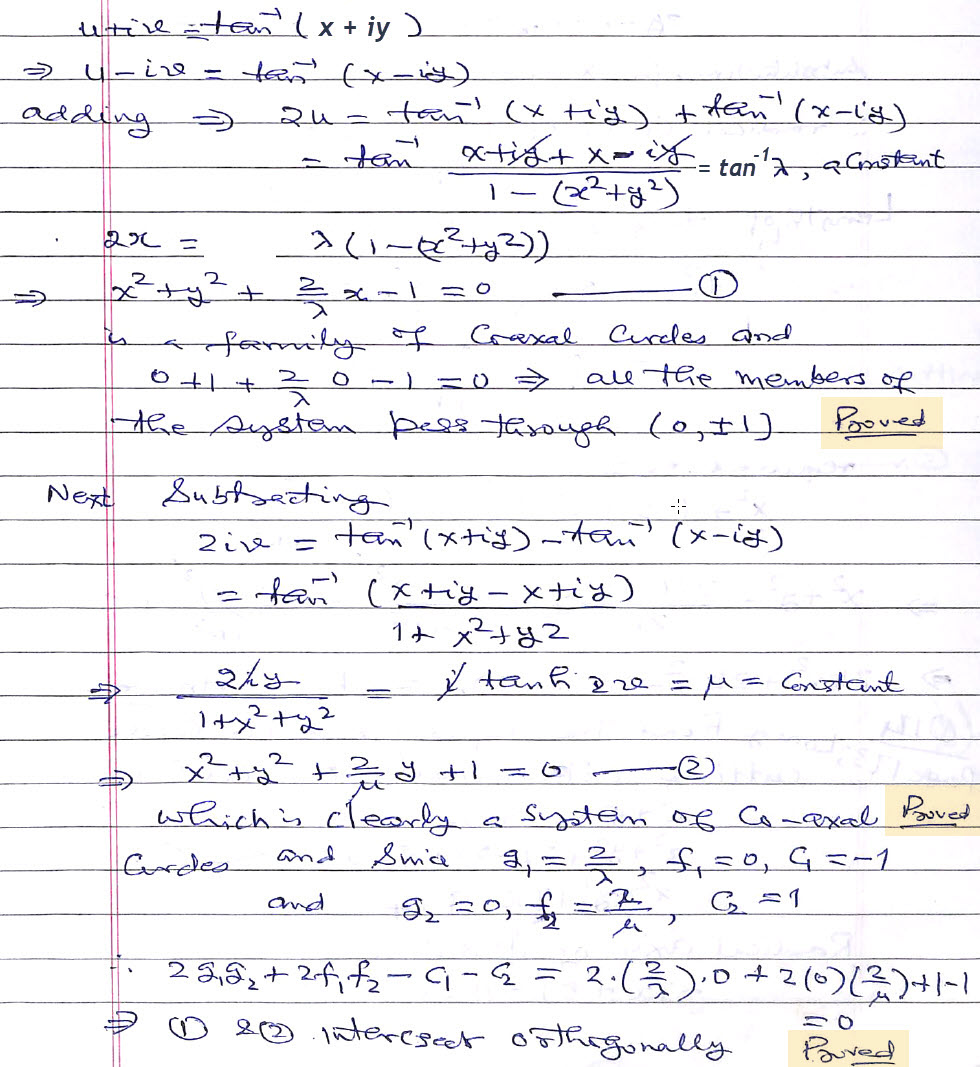 u + iv = tan⁻¹ ( x + iy )
⇒ u - iv = tan⁻¹ (x - iy)
adding ⇒ 2u = tan⁻¹ (x + iy) + tan⁻¹ (x - iy)
= tan⁻¹ (x + iy + x - iy)/(1 - (x² + y²)) = tan⁻¹ λ, a Constant
2x = λ (1 - (x² + y²))
⇒ x² + y² + 2/λ x - 1 = 0 ——— ①
is a family of Coaxal Circles and
0 + 1 + 2/λ 0 - 1 = 0 ⇒ all the members of
the system pass through (0, ±1) Proved
Next Subtracting
2iv = tan⁻¹ (x + iy) - tan⁻¹ (x - iy)
= tan⁻¹ (x + iy - x + iy)/(1 + x² + y2)
⇒ 2iy/(1 + x² + y²) = i tanh 2v = μ = Constant
⇒ x² + y² + 2/μ y + 1 = 0 ——— ②
which is clearly a system of Co-axal Proved
Circles and Since g₁ = 2/λ, f₁ = 0, C₁ = -1
and g₂ = 0, f₂ = 2/μ, C₂ = 1
∴ 2g₁g₂ + 2f₁f₂ - C₁ - C₂ = 2.(2/λ).0 + 2(0)(2/μ) + 1 - 1
= 0
⇒ ① & ② intersect orthogonally Proved